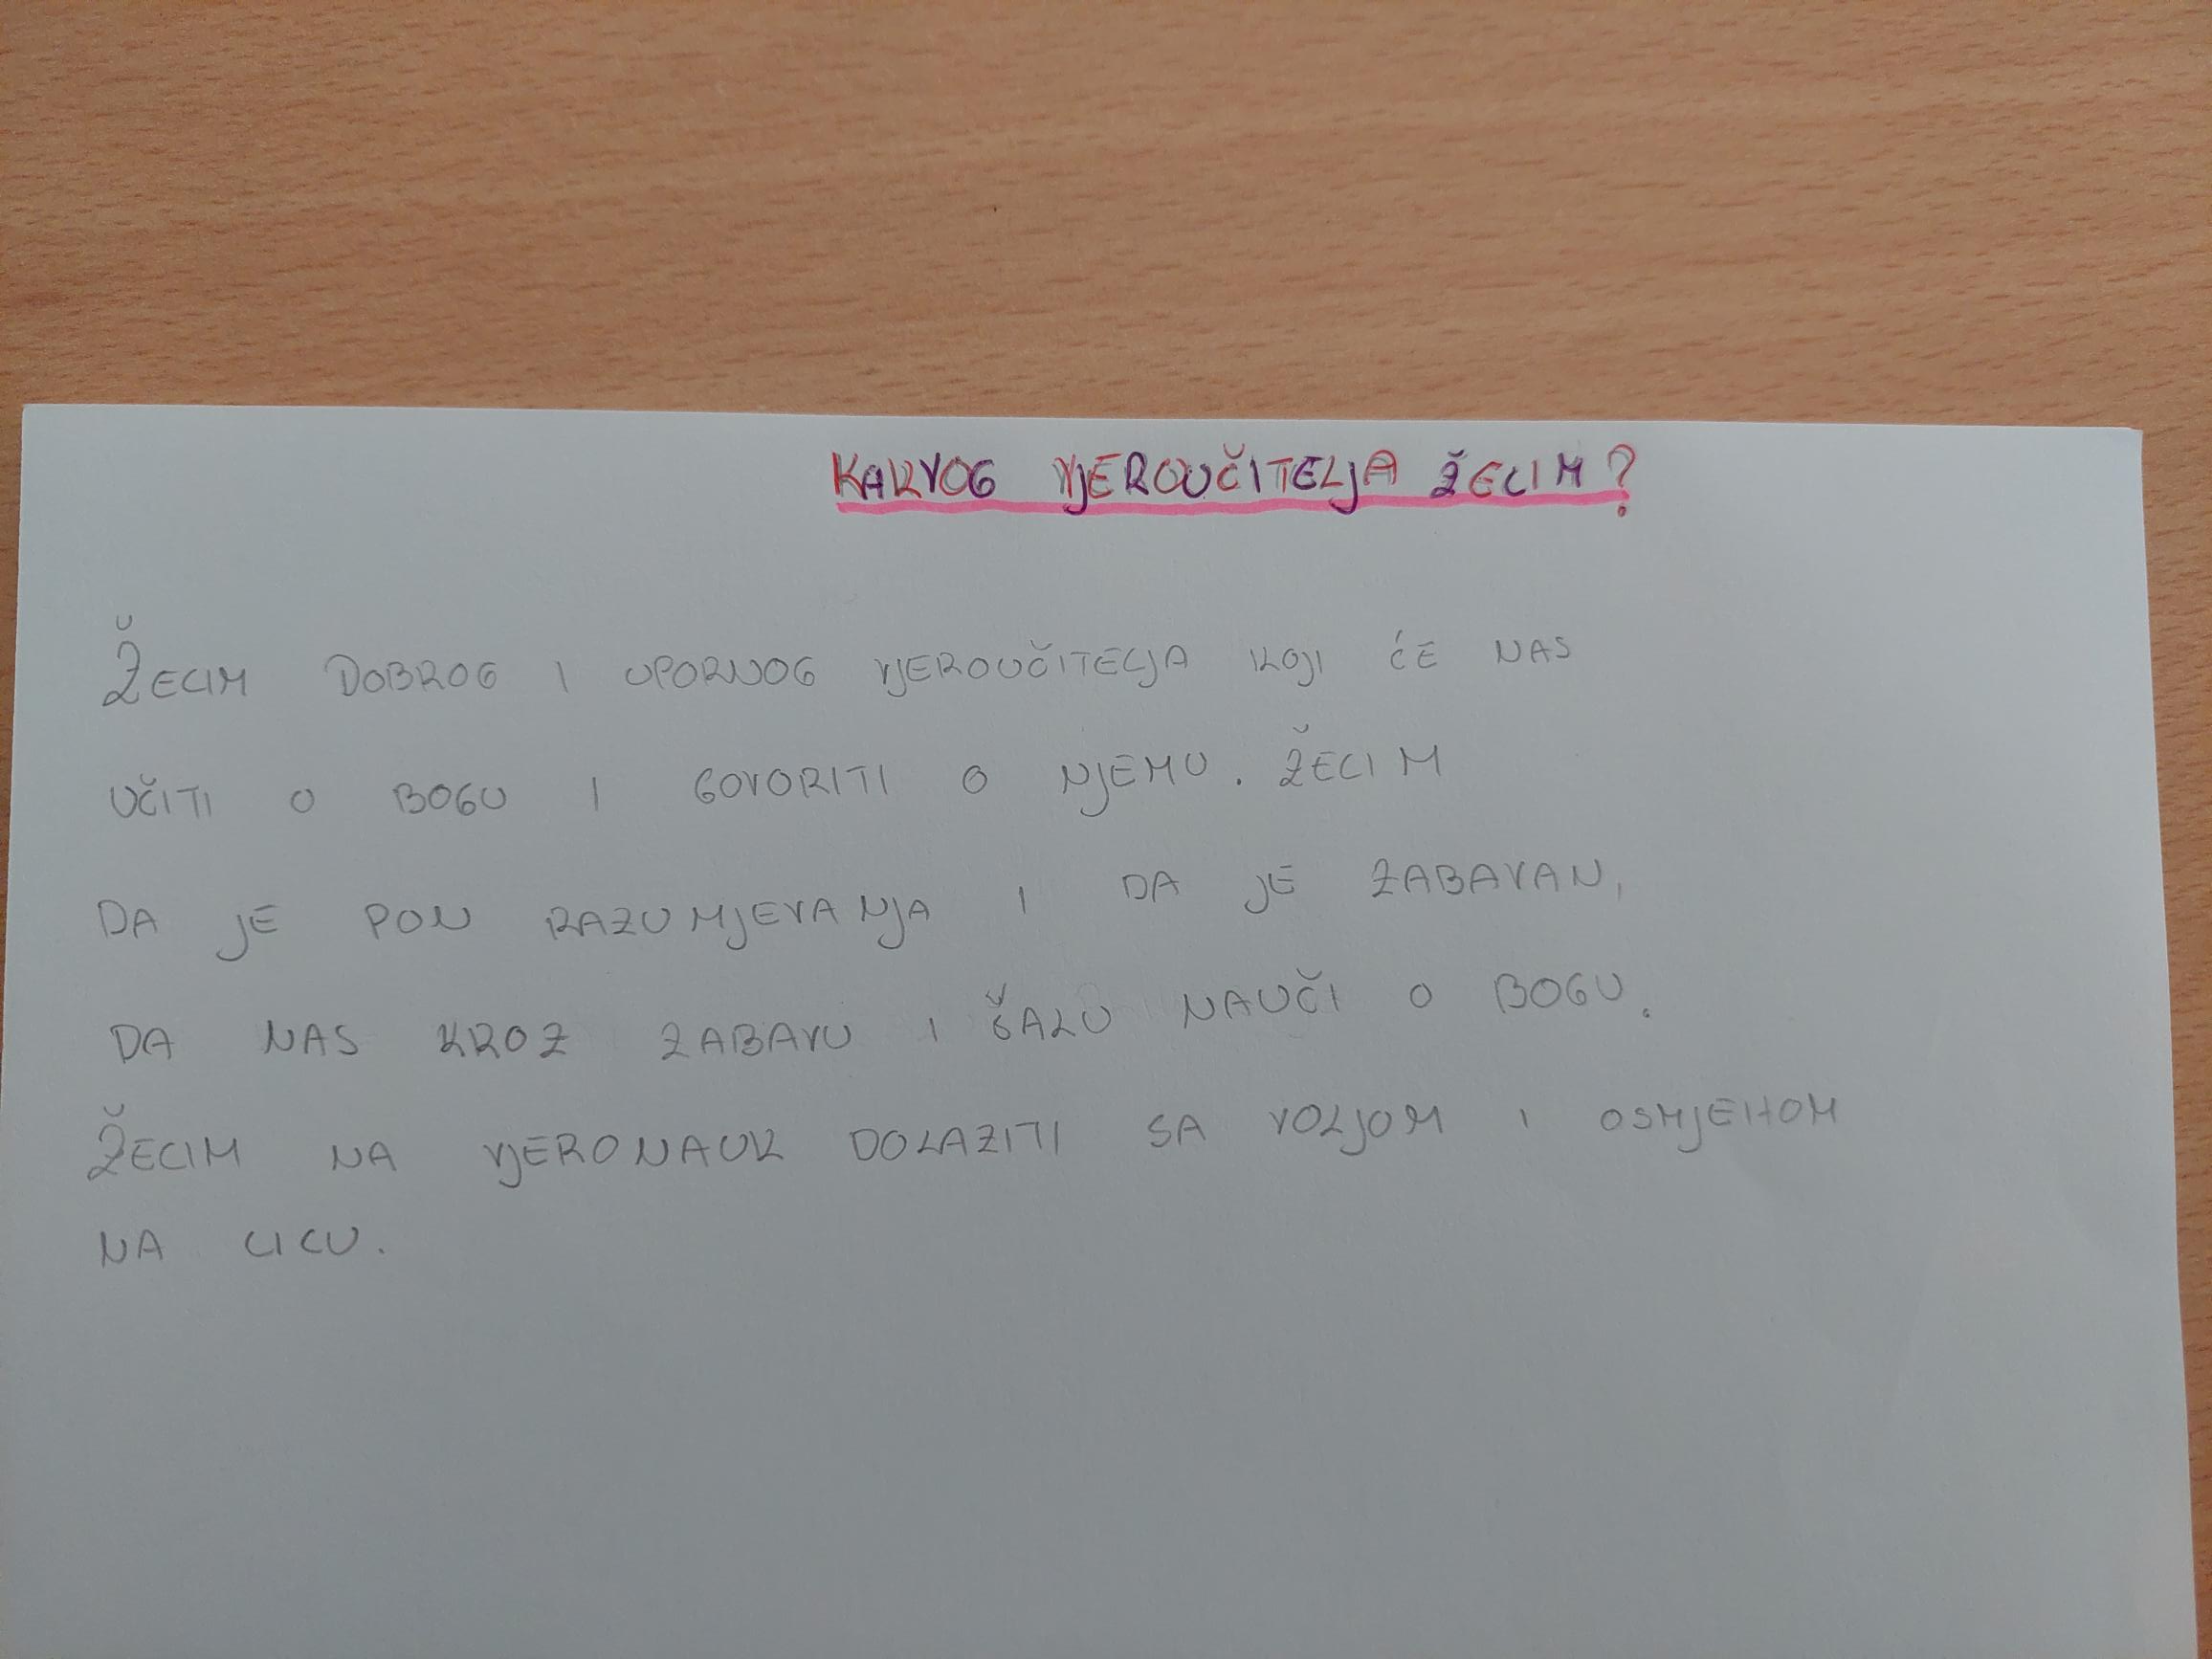 KAKVOG VJEROUČITELJA ŽELIM?
ŽELIM DOBROG I UPORNOG VJEROUČITELJA KOJI ĆE NAS
UČITI O BOGU I GOVORITI O NJEMU. ŽELIM
DA JE PUN RAZUMJEVANJA I DA JE ZABAVAN,
DA NAS KROZ ZABAVU I ŠALU NAUČI O BOGU.
ŽELIM NA VJERONAUK DOLAZITI SA VOLJOM I OSMJEHOM
NA LICU.